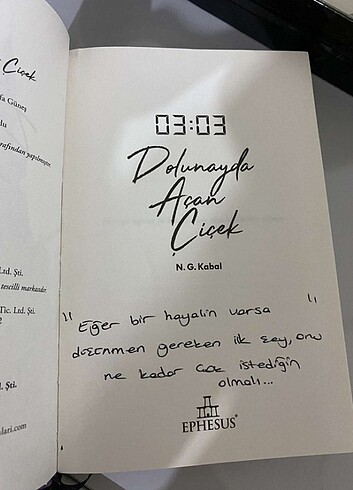 Çiçek
fa Güneş
du
rafından yapılmıştır.
Ltd. Şti.
tescilli markasıdır.
Tic. Ltd. Şti.
. Şti.
lari.com
03:03
Dolunayda
Açan
Çiçek
N. G. Kabal
" Eğer bir hayalin varsa "
düşünmen gereken ilk şey, onu
ne kadar çok istediğin
olmalı...
EPHESUS®